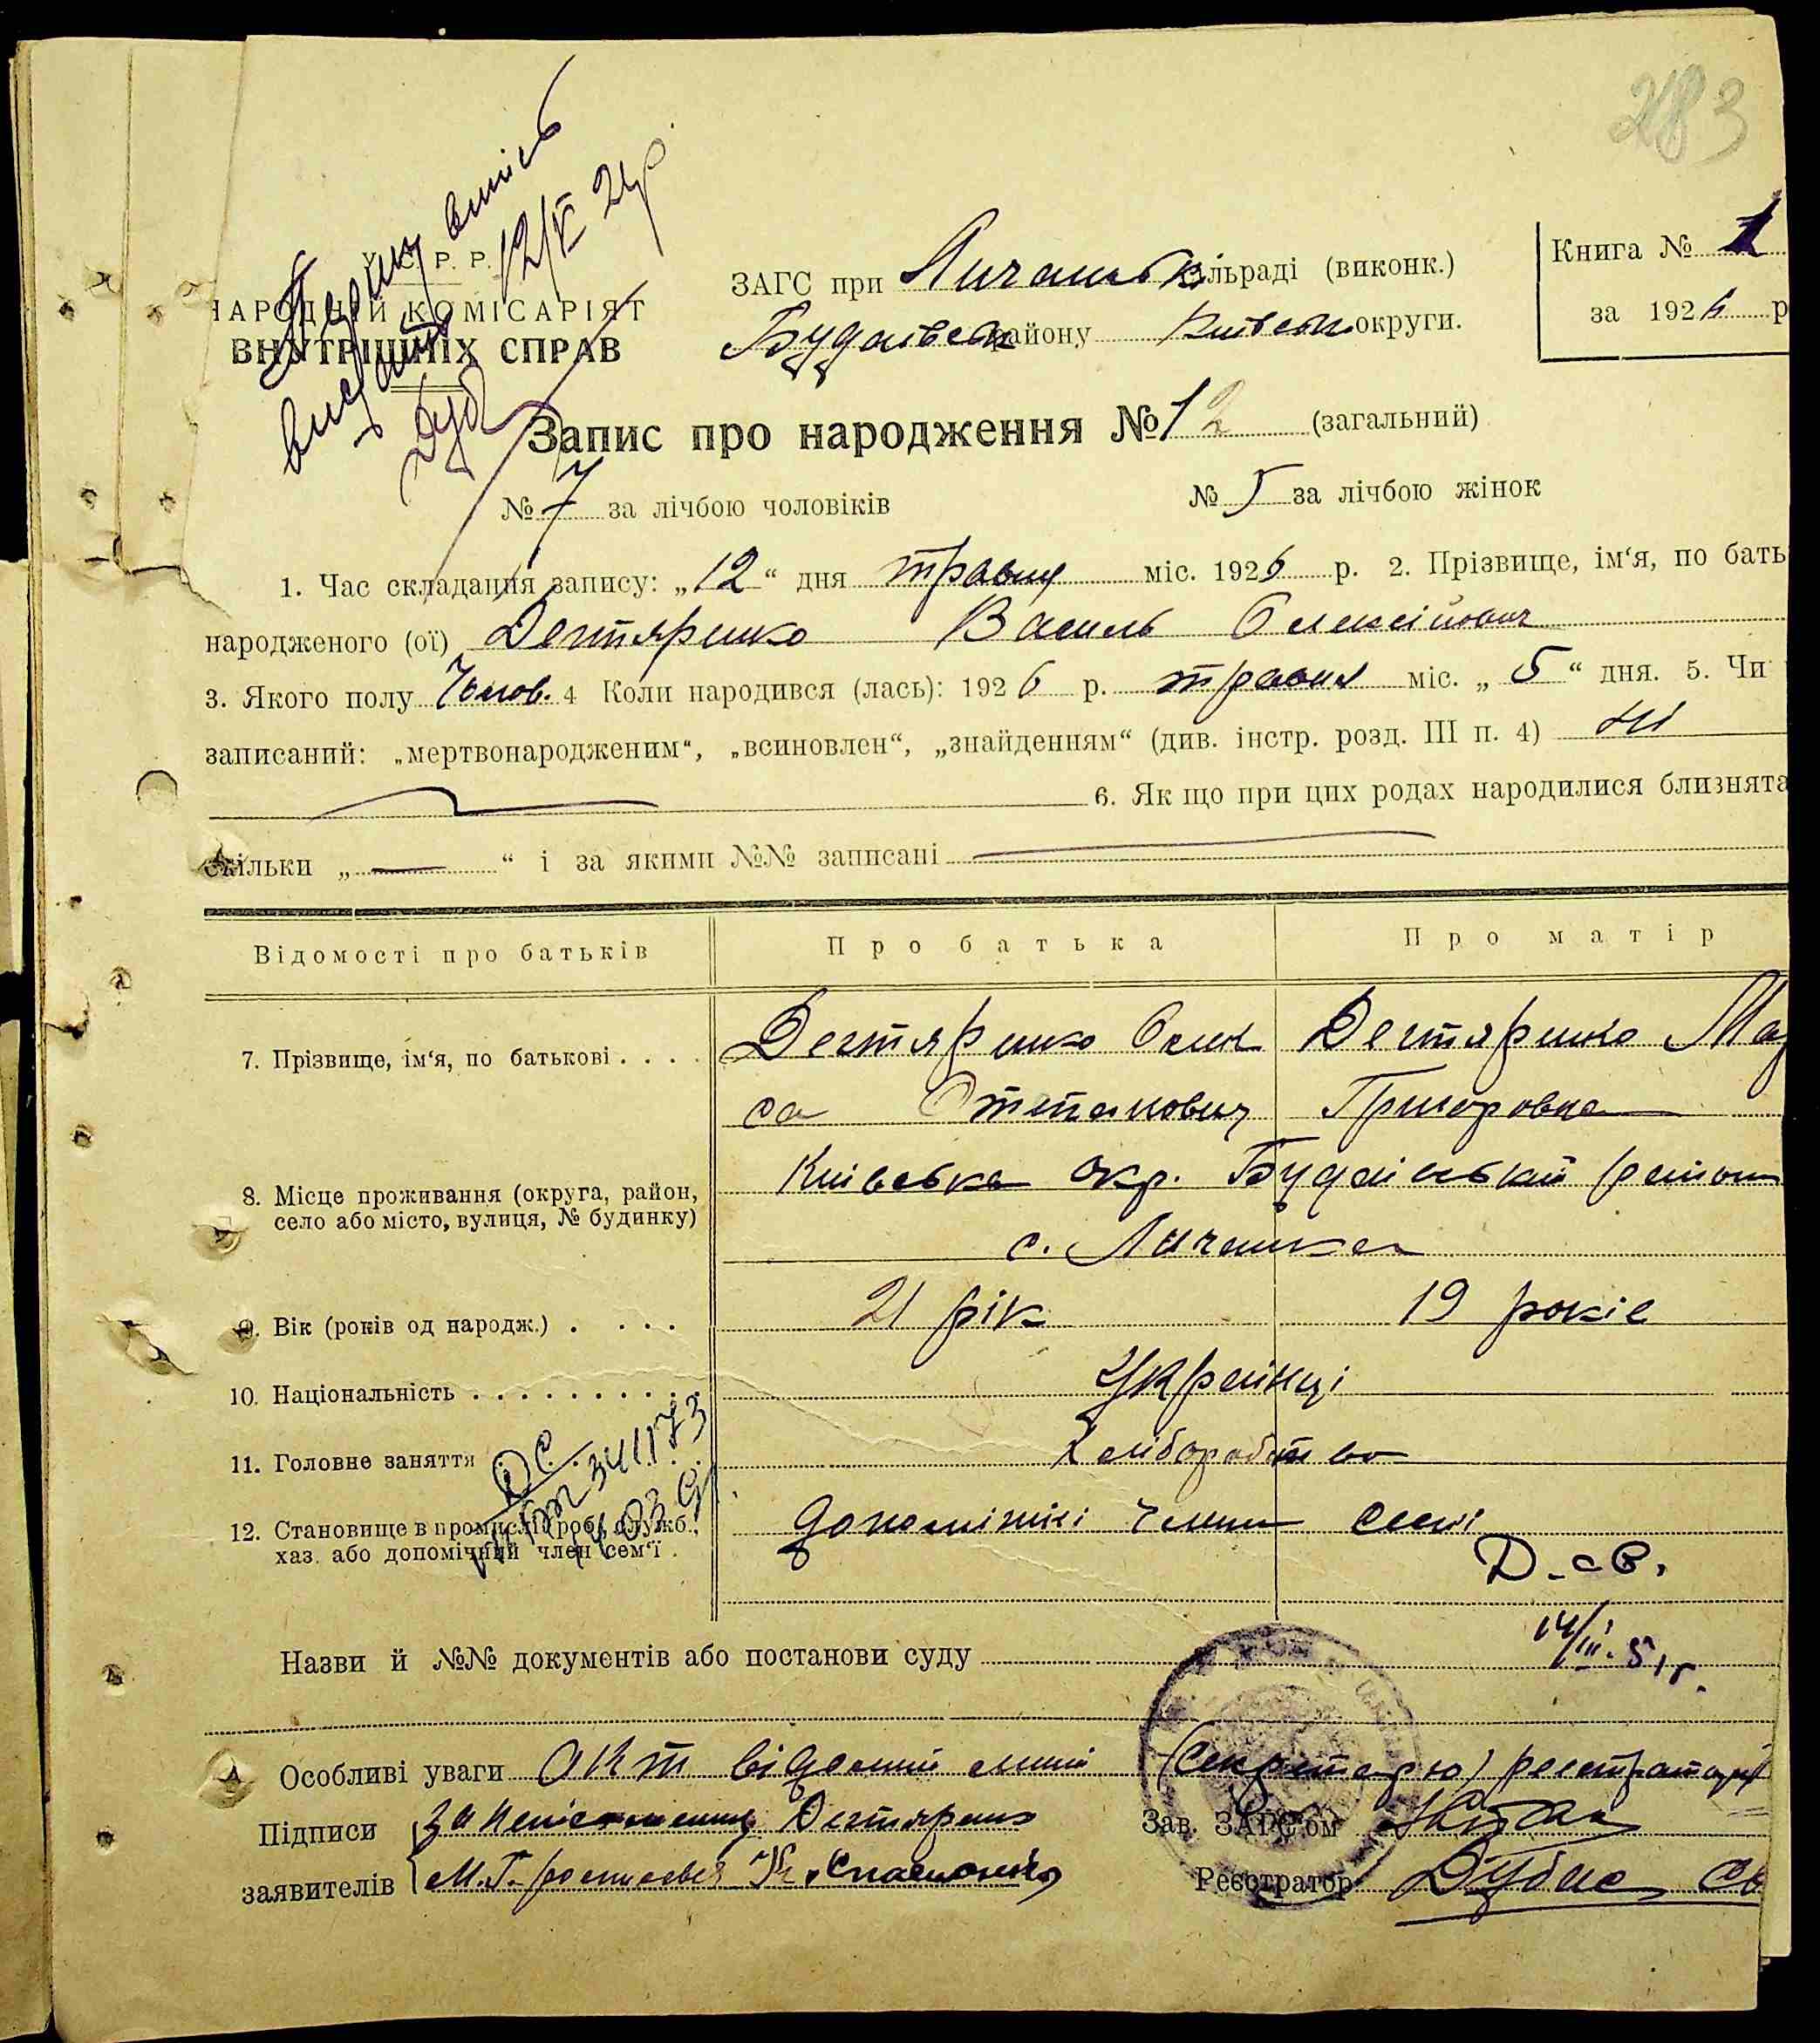 283
Первину випись
видано 12/V 26 р
У. С. Р. Р.
НАРОДНІЙ КОМІСАРІЯТ
ВНУТРІШНІХ СПРАВ
ЗАГС при Личанськ сільраді (виконк.)
Будаївськ району Київськ округи.
Книга № 1
за 1926 р
Запис про народження № 12 (загальний)
№ 7 за лічбою чоловіків № 5 за лічбою жінок
1. Час складання запису: „12“ дня травня міс. 1926 р. 2. Прізвище, ім‘я, по бать
народженого (ої) Дегтяренко Василь Олексійович
3. Якого полу Чолов. 4 Коли народився (лась): 1926 р. травня міс. „5“ дня. 5. Чи
записаний: „мертвонародженим“, „всиновлен“, „знайденням“ (див. інстр. розд. III п. 4) ні
6. Як що при цих родах народилися близнята
скільки „ — “ і за якими №№ записані —
Відомості про батьків Про батька Про матір
7. Прізвище, ім‘я, по батькові . . . . Дегтяренко Олек Дегтяренко Мар
са Степанович Григоровна
8. Місце проживання (округа, район, Київська окр. Будаївський район
село або місто, вулиця, № будинку) с. Личанка
9. Вік (років од народж.) . . . . 21 рік 19 років
10. Національність . . . . . . . . . . Українці
11. Головне заняття Хліборобство
12. Становище в промислі (роб., служб., допоміжні члени семі
хаз. або допомічний член сем‘ї .
Д.св.
14/III.51г.
Назви й №№ документів або постанови суду
Особливі уваги Акт відомий мині (секретарю) реєстратору
Підписи За неписьменну Дегтяренко
заявителів М. Г. росписався
Зав. ЗАГС‘ом
Реєстратор